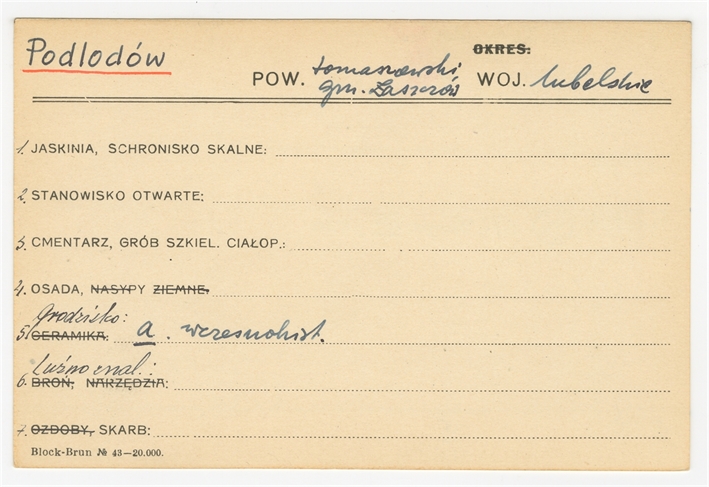 Podlodów
OKRES:
POW. tomaszewski WOJ. lubelskie
gm. Łaszczów
1. JASKINIA, SCHRONISKO SKALNE:
2. STANOWISKO OTWARTE:
3. CMENTARZ, GRÓB SZKIEL. CIAŁOP.:
4. OSADA, NASYPY ZIEMNE.
Grodzisko:
5. CERAMIKA. a. wczesnohist.
Luźno znal.:
6. BROŃ, NARZĘDZIA:
7. OZDOBY, SKARB:
Block-Brun № 43—20.000.